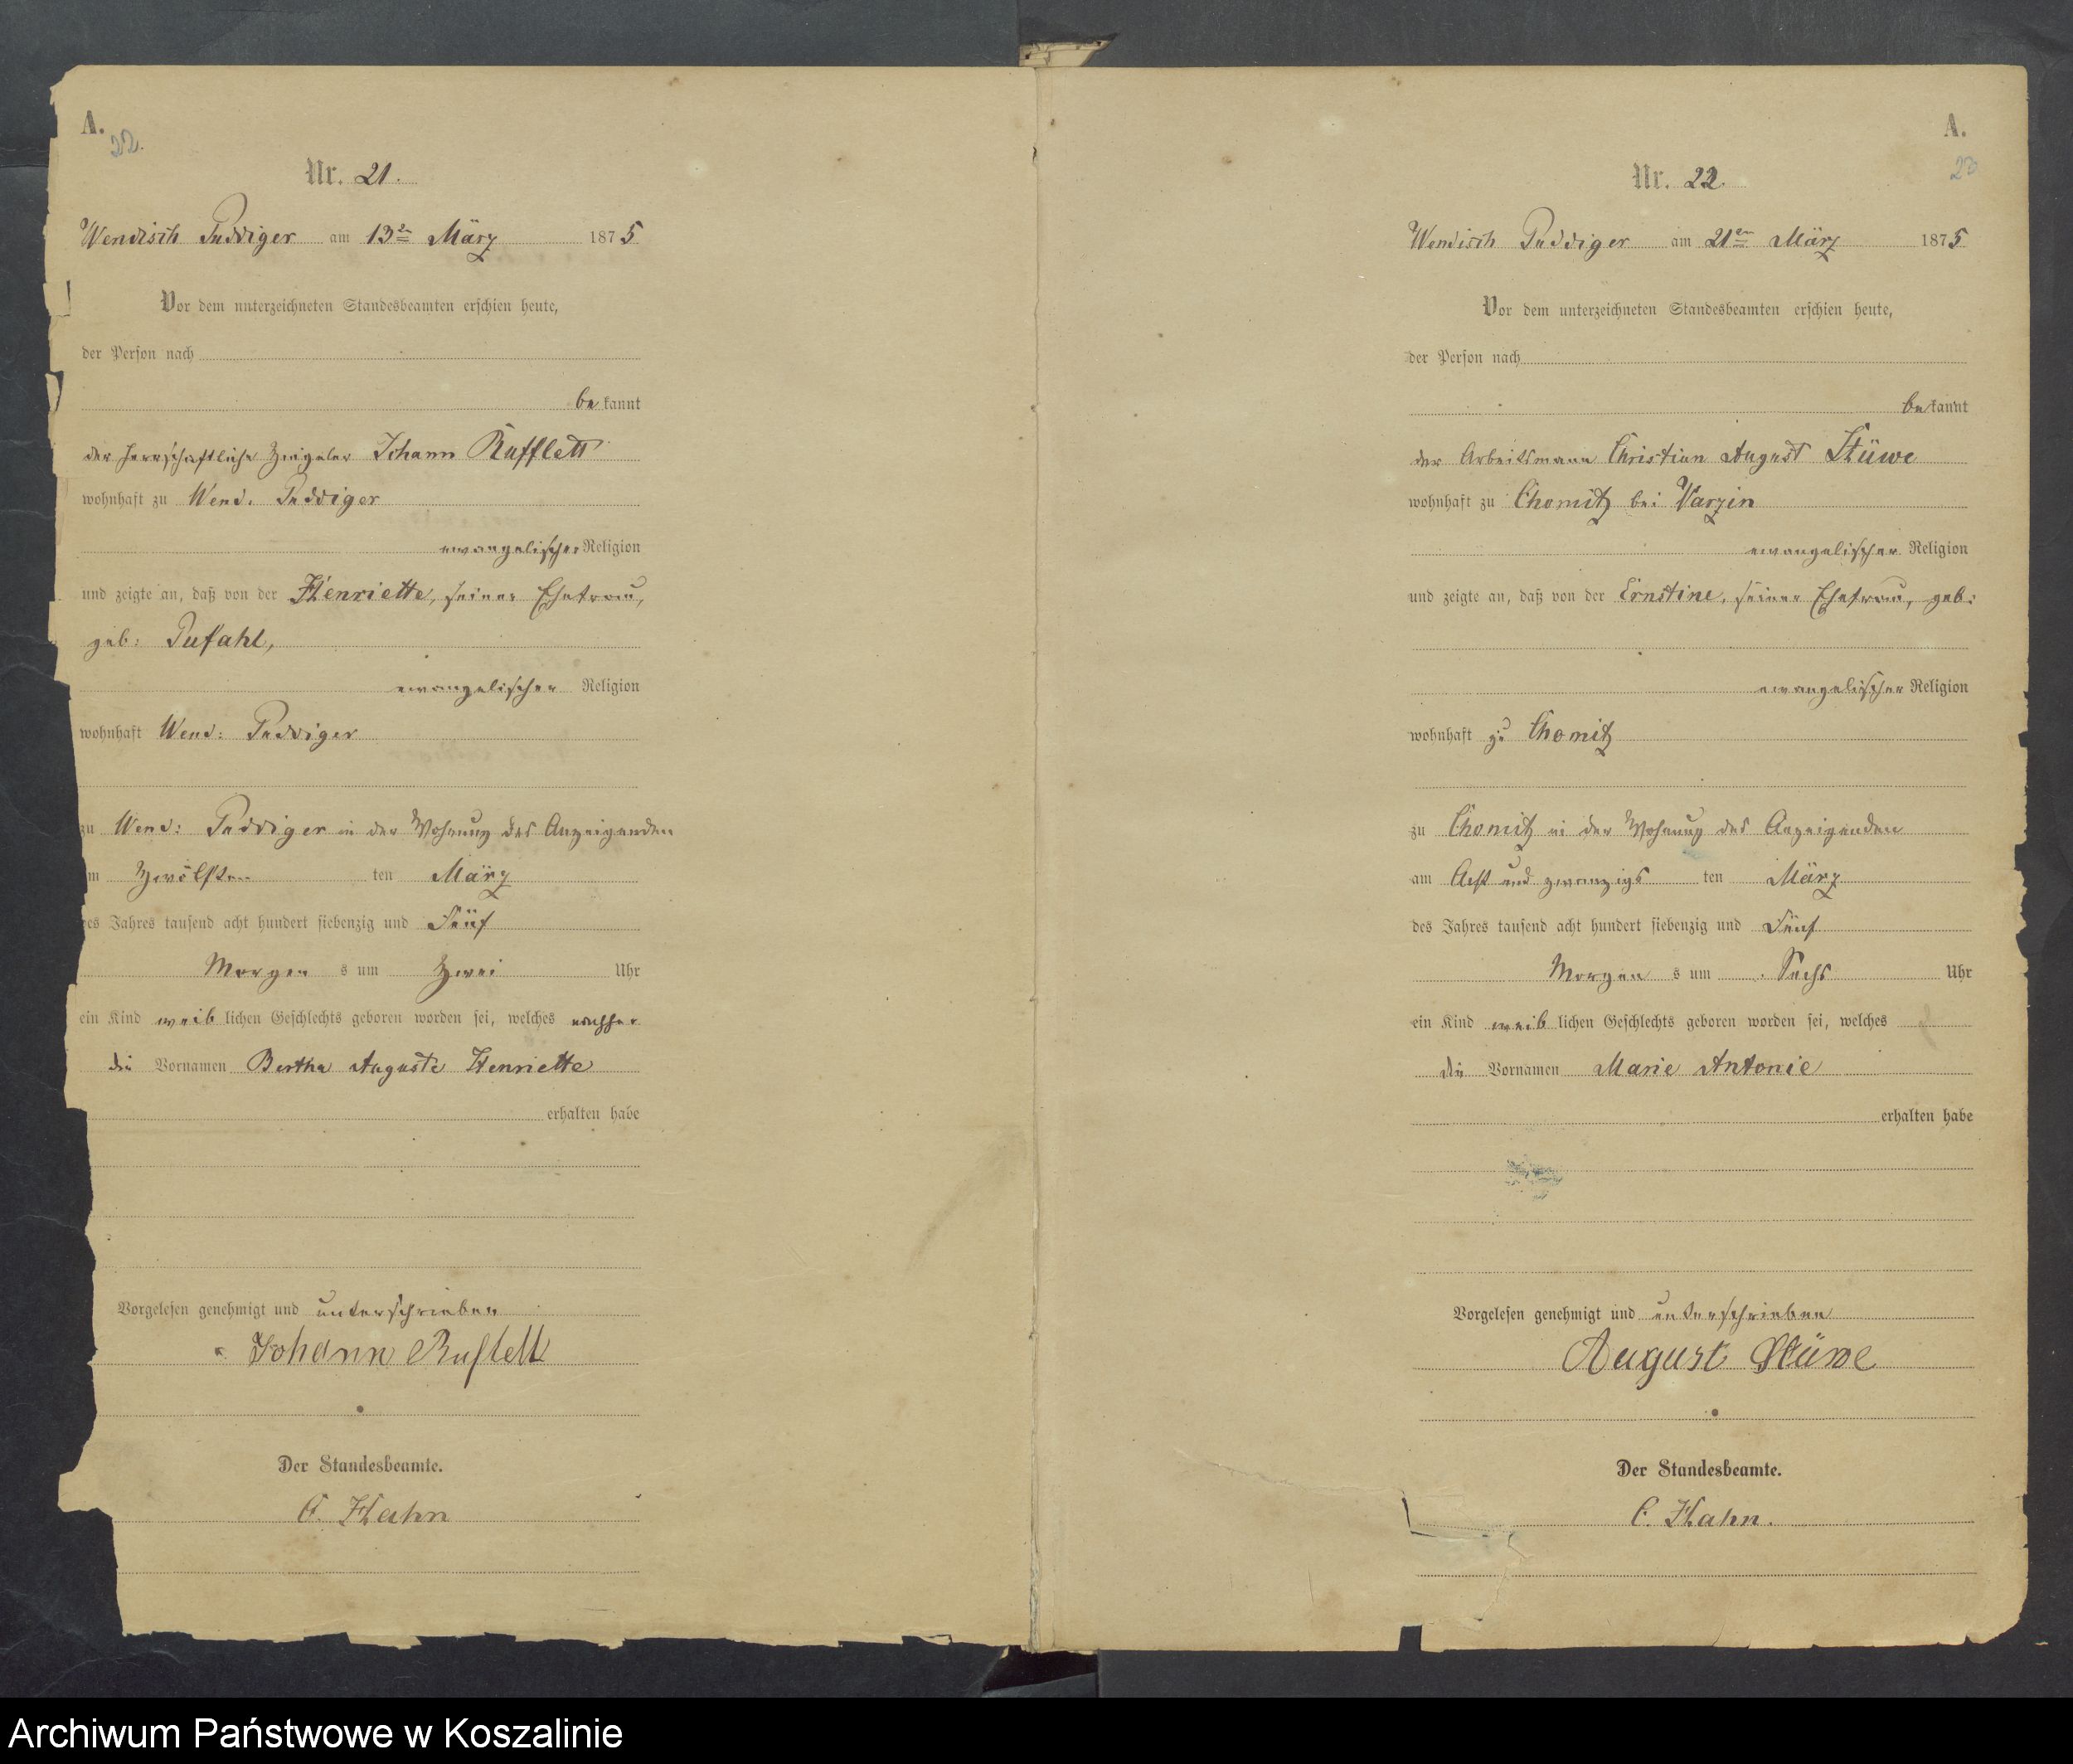 A.
22.
Nr. 21.
Wendisch Puddiger am 13ten März 1875
Vor dem unterzeichneten Standesbeamten erschien heute,
der Person nach
bekannt
der herrschaftliche Ziegeler Johann Rufflett
wohnhaft zu Wend. Puddiger
evangelischer Religion
und zeigte an, daß von der Henriette, seiner Ehefrau,
geb: Pufahl,
evangelischer Religion
wohnhaft Wend: Puddiger
zu Wend: Puddiger in der Wohnung des Anzeigenden
m Zwölften ten März
des Jahres tausend acht hundert siebenzig und Fünf
Morgen s um Zwei Uhr
ein Kind weiblichen Geschlechts geboren worden sei, welches
die Vornamen Bertha Auguste Henriette
erhalten habe
Vorgelesen genehmigt und unterschrieben
Johann Ruflett
Der Standesbeamte.
C. Hahn
A.
23
Nr. 22.
Wendisch Puddiger am 21ten März 1875
Vor dem unterzeichneten Standesbeamten erschien heute,
der Person nach
bekannt
der Arbeitsmann Christian August Stüwe
wohnhaft zu Chomitz bei Varzin
evangelischer Religion
und zeigte an, daß von der Ernstine, seiner Ehefrau, geb:
evangelischer Religion
wohnhaft zu Chomitz
zu Chomitz in der Wohnung des Anzeigenden
am Acht und zwanzigs ten März
des Jahres tausend acht hundert siebenzig und Fünf
Morgen s um Sechs Uhr
ein Kind weiblichen Geschlechts geboren worden sei, welches
die Vornamen Marie Antonie
erhalten habe
Vorgelesen genehmigt und unterschrieben
August Stüwe
Der Standesbeamte.
C. Hahn.
Archiwum Państwowe w Koszalinie